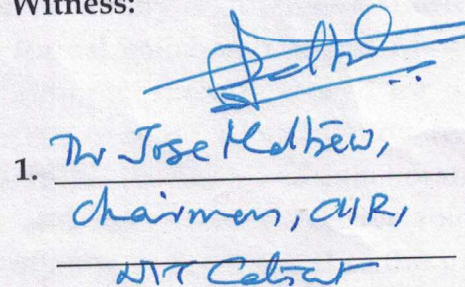 Witness:
1. Dr Jose Mathew,
Chairman, CIIR,
NIT Calicut